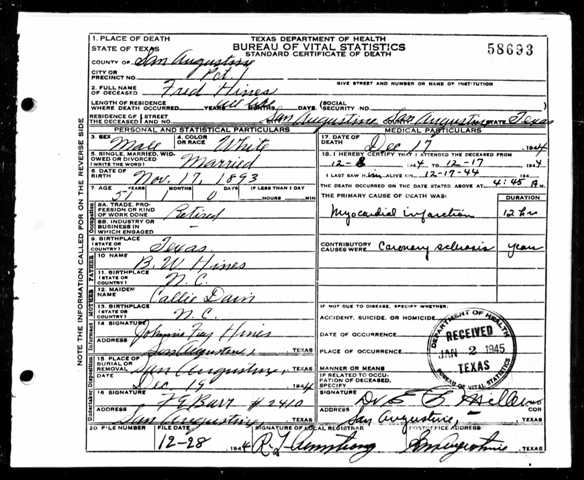 1. PLACE OF DEATH
STATE OF TEXAS
TEXAS DEPARTMENT OF HEALTH
BUREAU OF VITAL STATISTICS
STANDARD CERTIFICATE OF DEATH
58693
COUNTY OF San Augustine
CITY OR PRECINCT NO. Pct 1
GIVE STREET AND NUMBER OR NAME OF INSTITUTION
2. FULL NAME OF DECEASED Fred Hines
LENGTH OF RESIDENCE WHERE DEATH OCCURRED YEARS MONTHS DAYS
SOCIAL SECURITY NO.
RESIDENCE OF THE DECEASED STREET AND NO. San Augustine, San Augustine STATE Texas
PERSONAL AND STATISTICAL PARTICULARS
3. SEX Male
4. COLOR OR RACE White
5. SINGLE, MARRIED, WIDOWED OR DIVORCED (WRITE THE WORD) Married
6. DATE OF BIRTH Nov. 17, 1893
7. AGE 51 1 0 IF LESS THAN 1 DAY HOURS MIN
8A. TRADE, PROFESSION OR KIND OF WORK DONE Retired
8B. INDUSTRY OR BUSINESS IN WHICH ENGAGED -
9. BIRTHPLACE (STATE OR COUNTRY) Texas
10. NAME B. W. Hines
11. BIRTHPLACE (STATE OR COUNTRY) N. C.
12. MAIDEN NAME Callie
13. BIRTHPLACE (STATE OR COUNTRY) N. C.
14. SIGNATURE Johnnie Hines
ADDRESS San Augustine, TEXAS
15. PLACE OF BURIAL OR REMOVAL San Augustine, TEXAS
DATE Dec. 19 1944
16. SIGNATURE # 2410
ADDRESS San Augustine, TEXAS
20. FILE NUMBER
FILE DATE 12-28 1944
MEDICAL PARTICULARS
17. DATE OF DEATH Dec 17 1944
18. I HEREBY CERTIFY THAT I ATTENDED THE DECEASED FROM
12-8 1944 TO 12-17 1944
I LAST SAW him ALIVE ON 12-17-44 194
THE DEATH OCCURRED ON THE DATE STATED ABOVE AT 4:45 A M.
THE PRIMARY CAUSE OF DEATH WAS:
DURATION
Myocardial infarction 12 hrs
CONTRIBUTORY CAUSES WERE: Coronary sclerosis years
IF NOT DUE TO DISEASE, SPECIFY WHETHER:
ACCIDENT, SUICIDE, OR HOMICIDE
DATE OF OCCURRENCE
PLACE OF OCCURRENCE
MANNER OR MEANS
IF RELATED TO OCCUPATION OF DECEASED, SPECIFY
SIGNATURE Dr
ADDRESS San Augustine, TEXAS
SIGNATURE OF LOCAL REGISTRAR R. L. Armstrong
POSTOFFICE ADDRESS San Augustine, TEXAS
DEPARTMENT OF HEALTH
RECEIVED
JAN 2 1945
TEXAS
BUREAU OF VITAL STATISTICS
NOTE THE INFORMATION CALLED FOR ON THE REVERSE SIDE
Occupation
FATHERS
MOTHERS
Informant
Undertaker Disposition